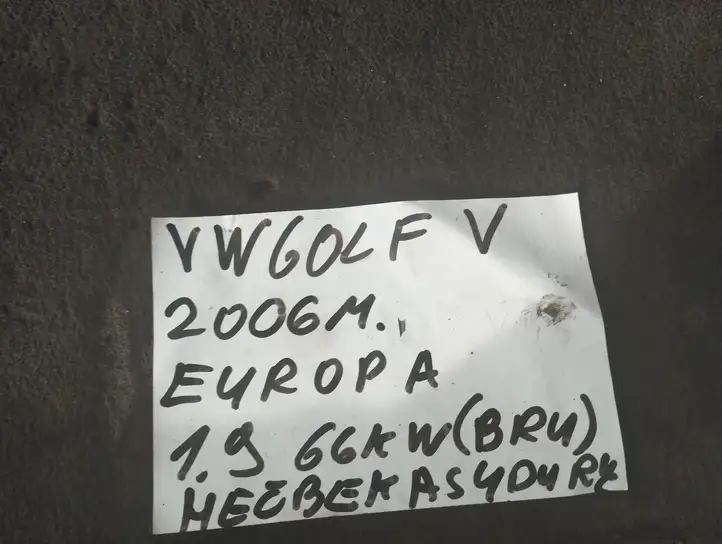 VW GOLF V
2006M.
EUROPA
1.9 66KW (BRU)
HEČBEKAS 4 DURŲ